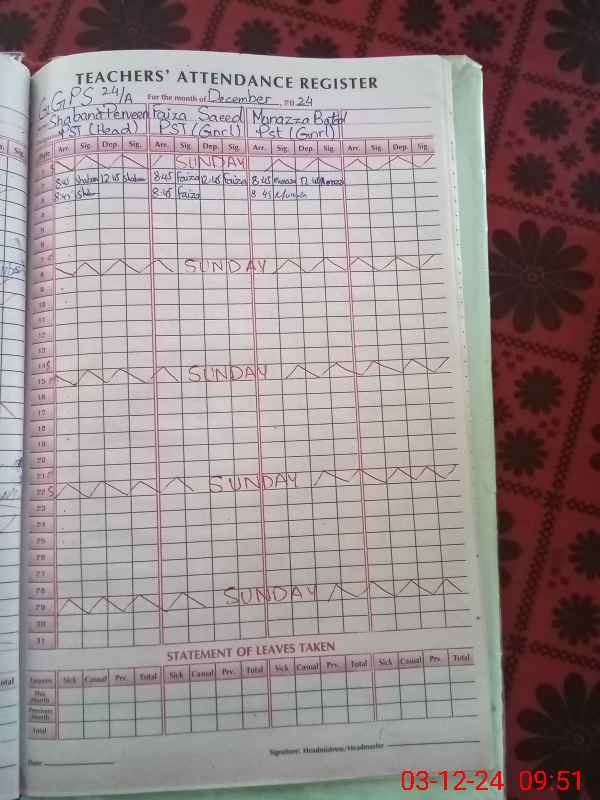 TEACHERS' ATTENDANCE REGISTER
GGPS 24/A For the month of December, 2024
Shabana Perveen Faiza Saeed Munazza Batool
PST (Head) PST (Gnrl) Pst (Gnrl)
Date Arr. Sig. Dep. Sig. Arr. Sig. Dep. Sig. Arr. Sig. Dep. Sig. Arr. Sig. Dep. Sig.
1 SUNDAY
2 8:45 Shabana 12:45 Shabana 8:45 Faiza 12:45 Faiza 8:45 Munazza 12:45 Munazza
3 8:45 8:45 Faiza 8:45 Munazza
4
5
6
7
8 SUNDAY
9
10
11
12
13
14
15 SUNDAY
16
17
18
19
20
21
22 SUNDAY
23
24
25
26
27
28
29 SUNDAY
30
31
STATEMENT OF LEAVES TAKEN
Leaves Sick Casual Prv. Total Sick Casual Prv. Total Sick Casual Prv. Total Sick Casual Prv. Total
This Month
Previous Month
Total
Date Signature: Headmistress/Headmaster
03-12-24 09:51